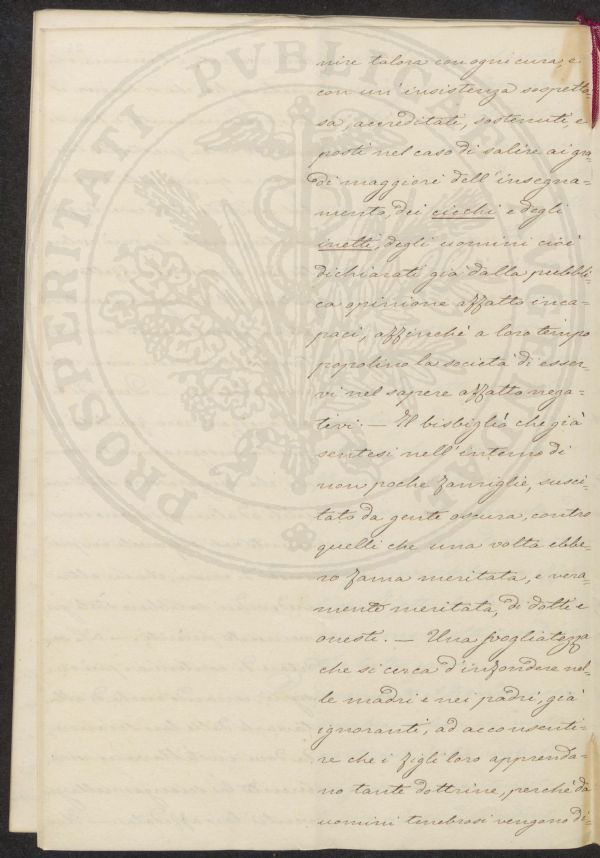 nire talora con ogni cura, e
con un' insistenza sospetto=
sa, accreditati, sostenuti, e
posti nel caso di salire ai gra=
di maggiori dell' insegna=
mento, dei ciechi e degli
inetti, degli uomini cioè
dichiarati già dalla pubbli=
ca opinione affatto inca=
paci, affinchè a loro tempo
popolino la società di esser=
vi nel sapere affatto nega=
tivi. — Il bisbiglio che già
sentesi nell' interno di
non poche famiglie, susci=
tato da gente oscura, contro
quelli che una volta ebbe=
ro fama meritata, e vera=
mente meritata, di dotti e
onesti. — Una svogliatezza
che si cerca d' infondere nel=
le madri e nei padri, già
ignoranti, ad acconsenti=
re che i figli loro apprenda=
no tante dottrine, perché da
uomini tenebrosi vengono di=
PROSPERITATI PVBLICAE